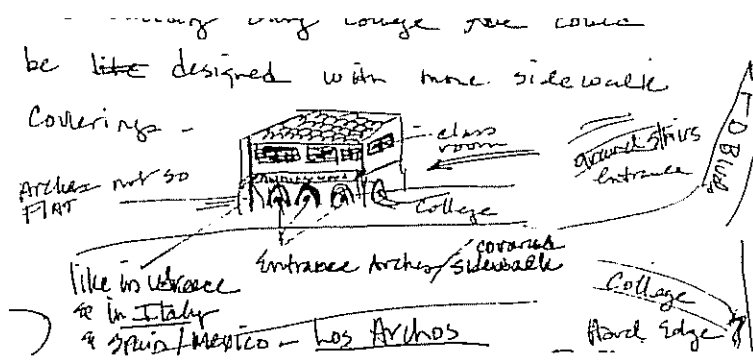 college
be like designed with more sidewalk
Coverings -
class
room
ground stairs
entrance
T-D Blvd.
Arches not so
FLAT
College
Entrance Arches / covered
sidewalk
like in Greece
& in Italy
& Spain/Mexico - Los Archos
College
Hard Edge